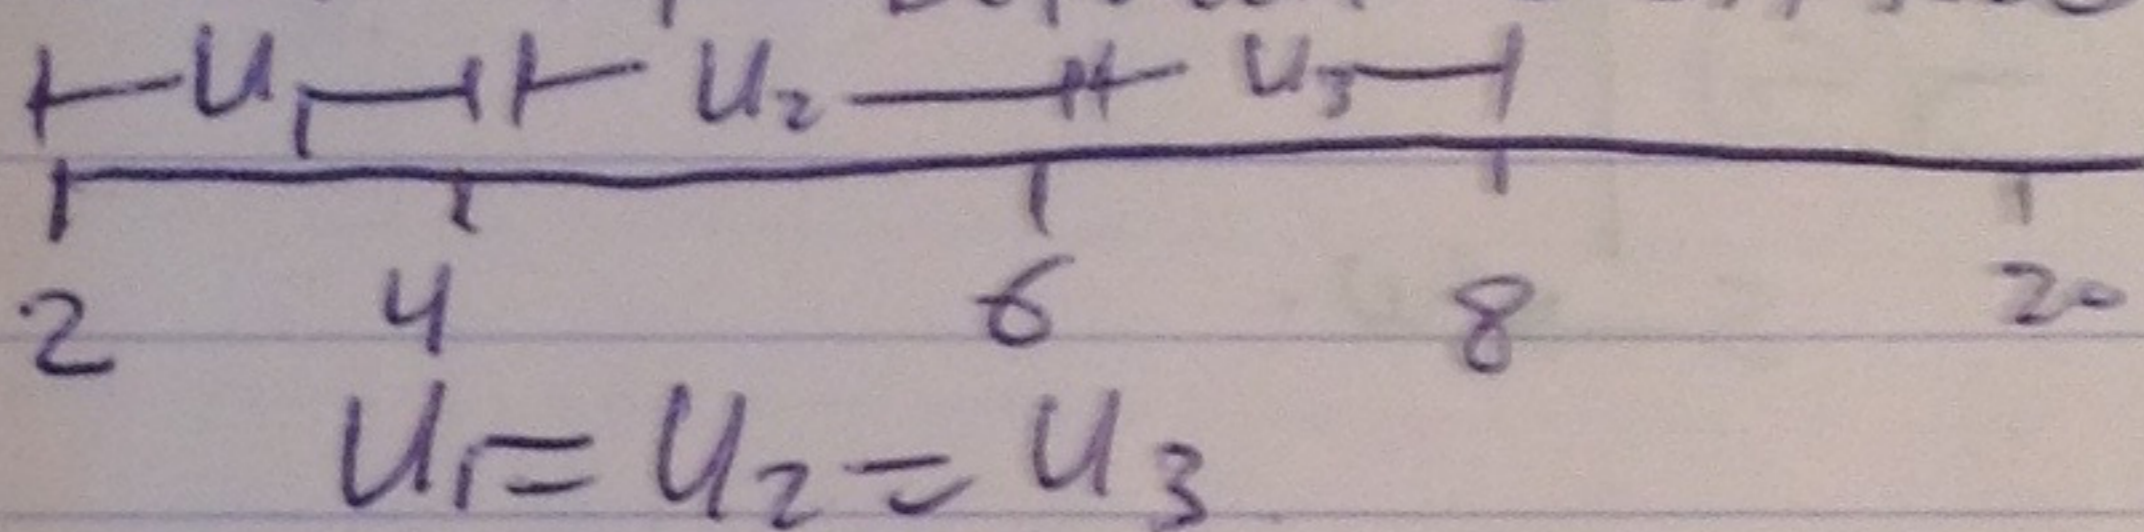 U₁ U₂ U₃
2 4 6 8 20
U₁ = U₂ = U₃